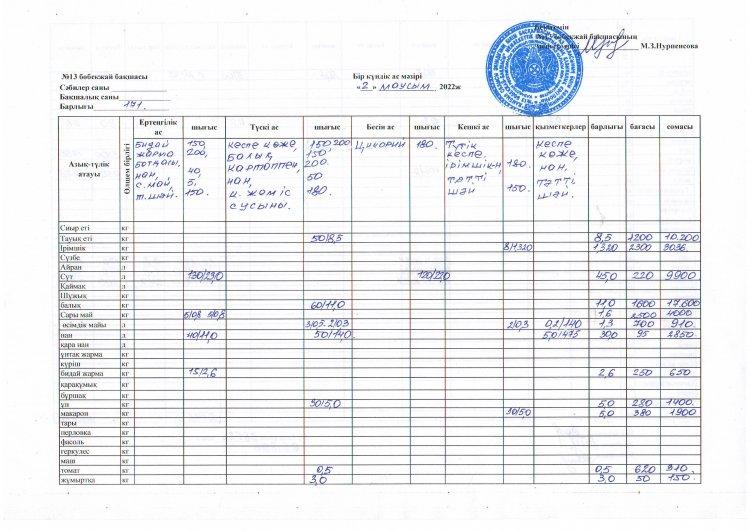 Бекітемін
№13 бөбекжай бақшасының
М.З.Нурпеисова
№13 бөбекжай бақшасы
Сәбилер саны
Бақшалық саны
Барлығы 171.
Бір күндік ас мәзірі
«2» маусым 2022ж
Азық-түлік атауы Өлшем бірлігі Ертеңгілік ас шығыс Түскі ас шығыс Бесін ас шығыс Кешкі ас шығыс қызметкерлер барлығы бағасы сомасы
Бидай 150, кеспе көже, 150/200 Цикорий 180. Түтік кеспе
жарма 200, балық 150, кеспе көже,
ботқасы, картоппен, 200. ірімшікп, 180. нан,
нан, 40, нан, 50 тәтті тәтті
с.май, 5, к. жеміс 180. шәй 150. шәй.
т.шәй. 150. сусыны.
Сиыр еті кг
Тауық еті кг 50/8,5 8,5 1200 10.200
Ірімшік кг 8/1320 1,320 2300 3036
Сүзбе кг
Айран л
Сүт л 130/23,0 120/22,0 45,0 220 9900
Қаймақ л
Шұжық кг
балық кг 60/11,0 11,0 1600 17.600
Сары май кг 5/08 5/0,8 1,6 2500 4000
өсімдік майы л 3/05. 2/03 2/0,3 0,2/140 1,3 700 910
нан л 40/11,0 50/14,0 5,0/475 30,0 95 2850
қара нан л
ұнтақ жарма кг
күріш кг
бидай жарма кг 15/2,6 2,6 250 650
қарақұмық кг
бұршақ кг
ұн кг 30/5,0 5,0 280 1400
макарон кг 30/5,0 5,0 380 1900
тары кг
перловка кг
фасоль кг
геркулес кг
маш кг
томат кг 0,5 0,5 620 310
жұмыртқа кг 3,0 3,0 50 150